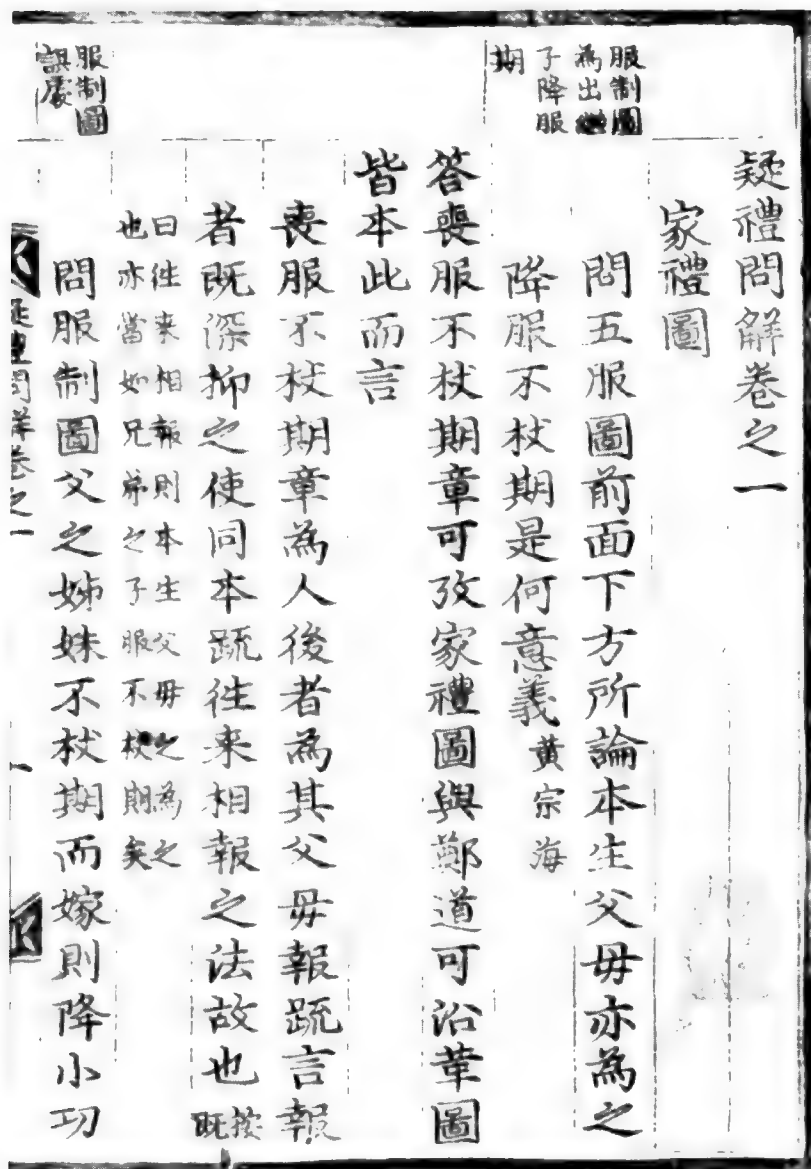 服制圖
為出繼
子降服
期
疑禮問解卷之一
家禮圖
問五服圖前面下方所論本生父母亦為之
降服不杖期是何意義黃宗海
答喪服不杖期章可攷家禮圖與鄭道可沿革圖
皆本此而言
喪服不杖期章為人後者為其父母報䟽言報
者既深抑之使同本䟽徃来相報之法故也按
既
曰徃来相報則本生父母之為之
也亦當如兄弟之子服不杖期矣
服制圖
誤處
問服制圖父之姊妹不杖期而嫁則降小功
疑禮問解卷之一
一